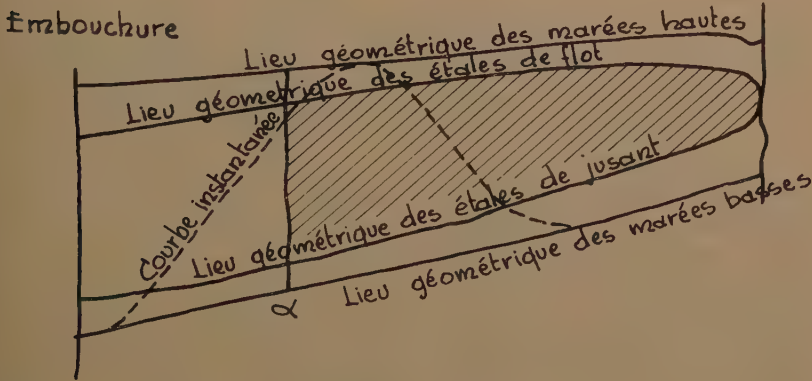 Embouchure
Lieu géométrique des marées hautes
Lieu géometrique des étales de flot
Courbe instantanée
Lieu géométrique des étales de jusant
α
Lieu géométrique des marées basses